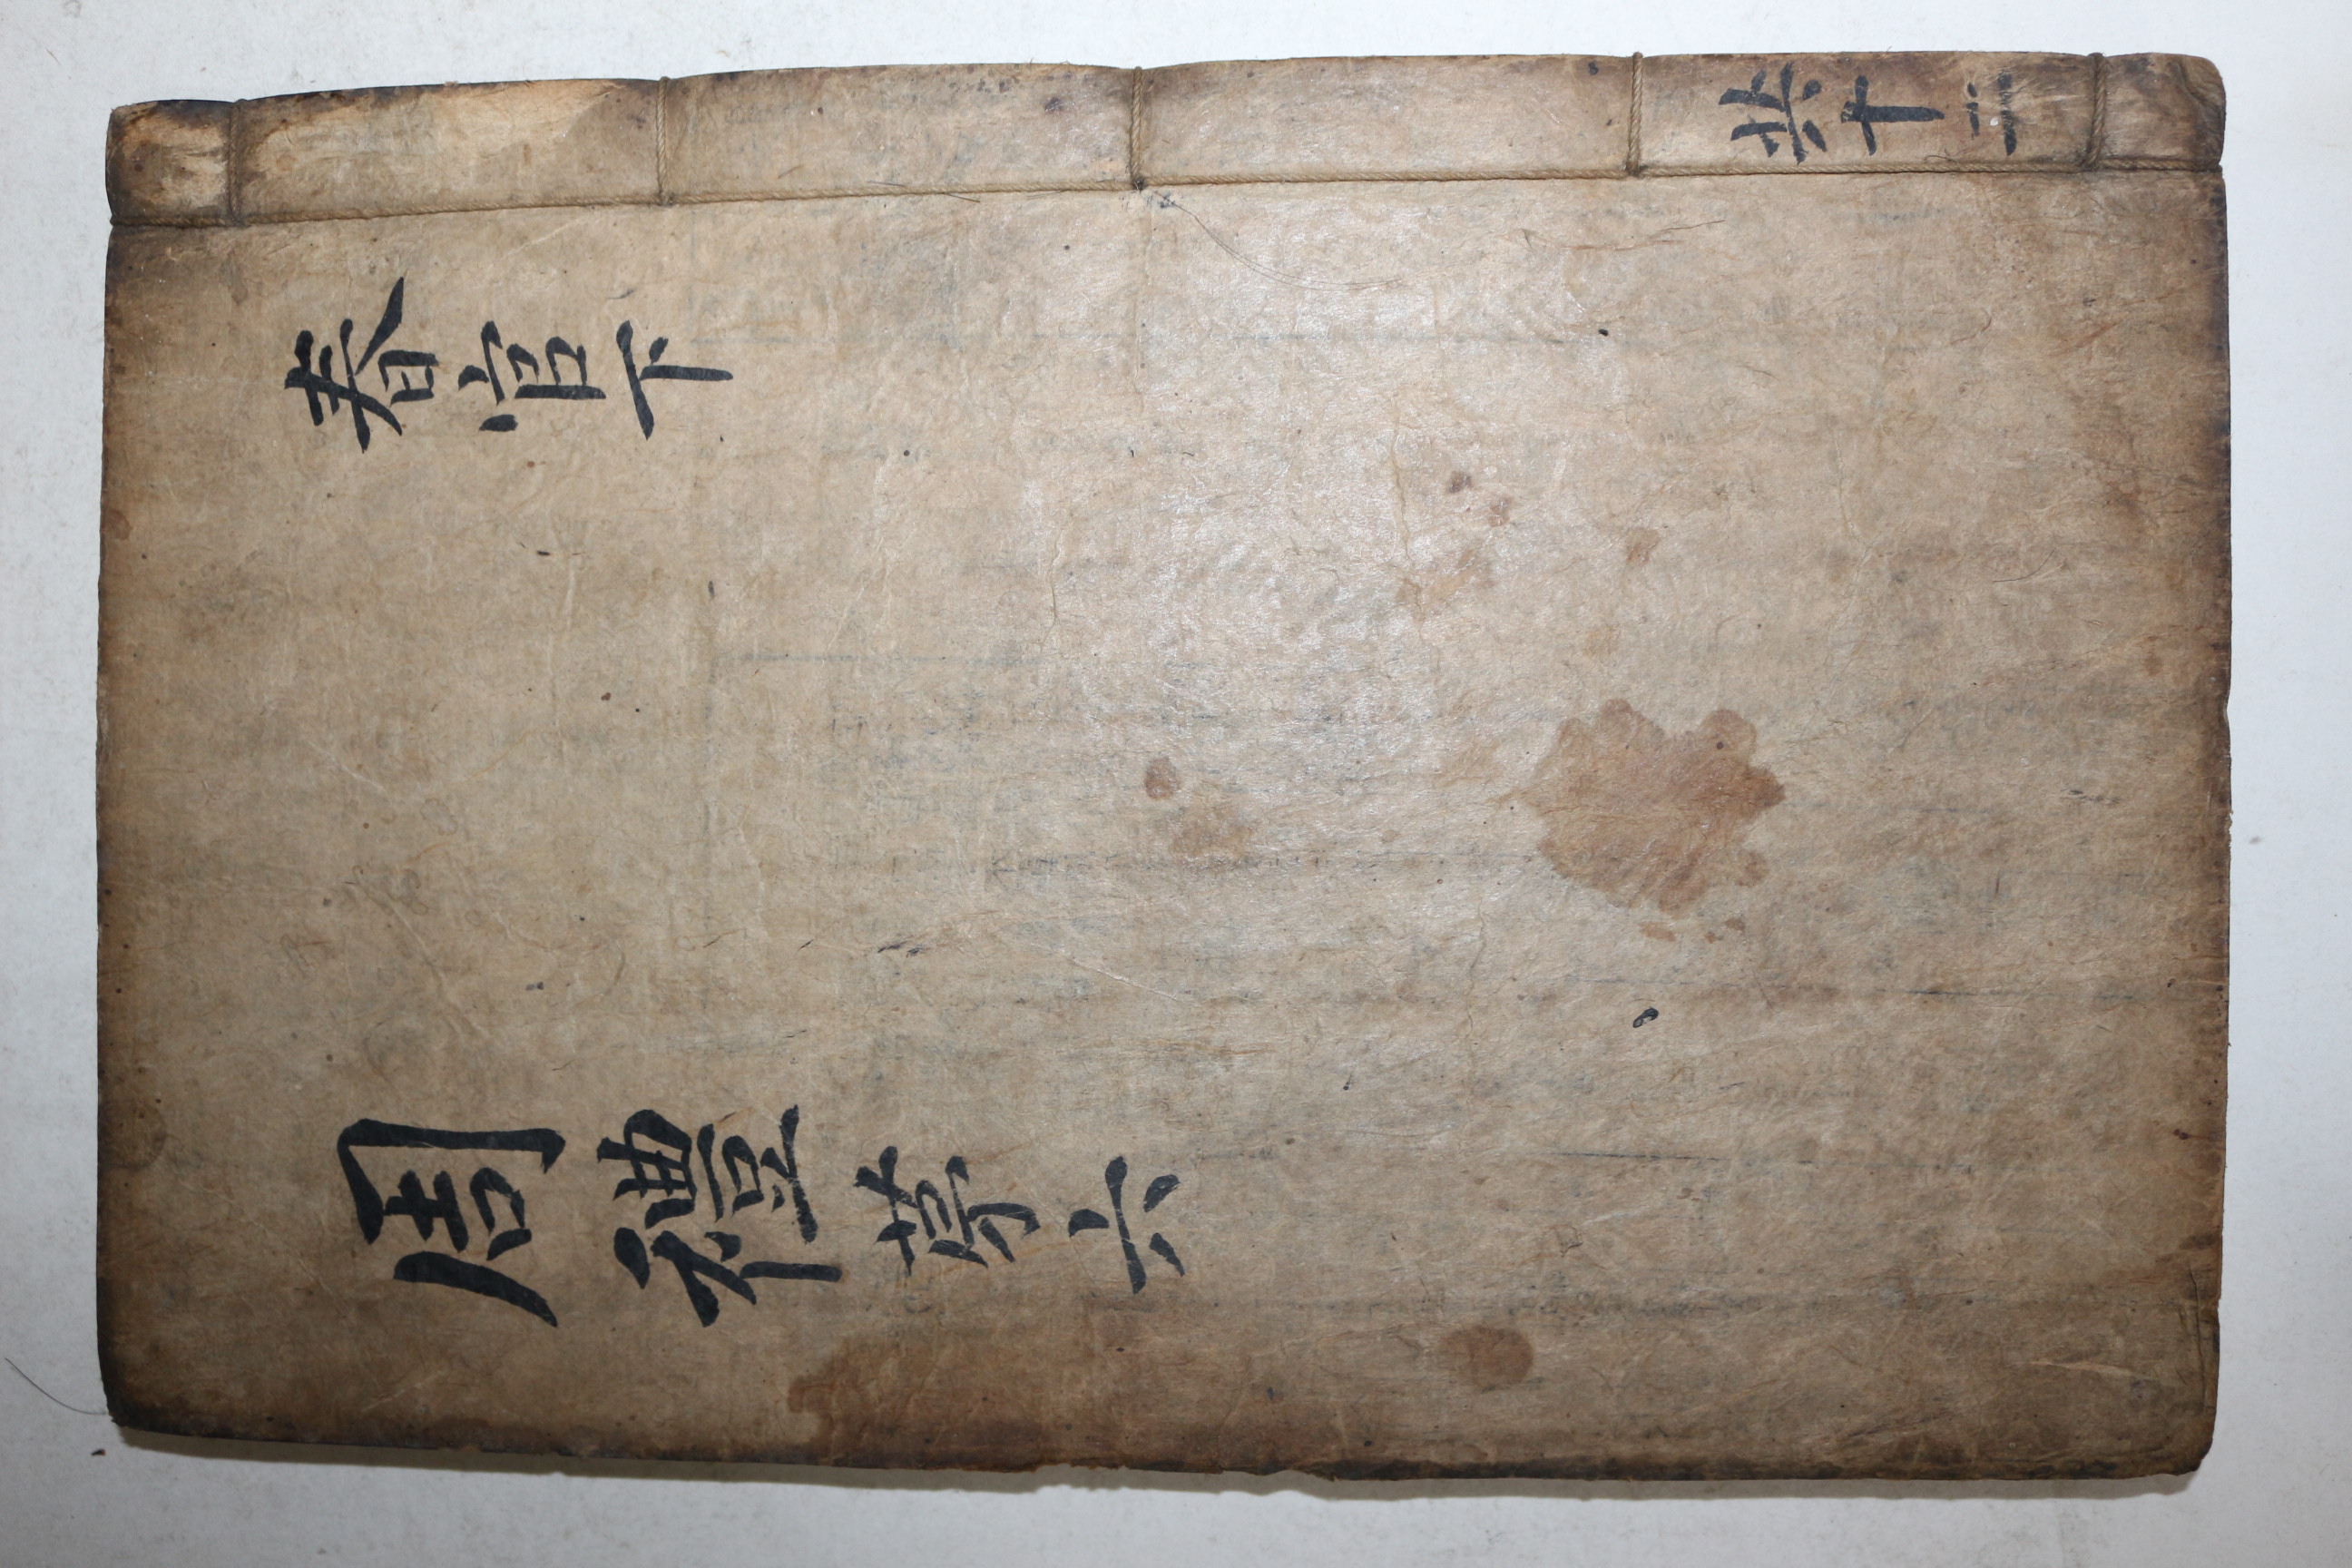 共十二
春官下
周禮第六